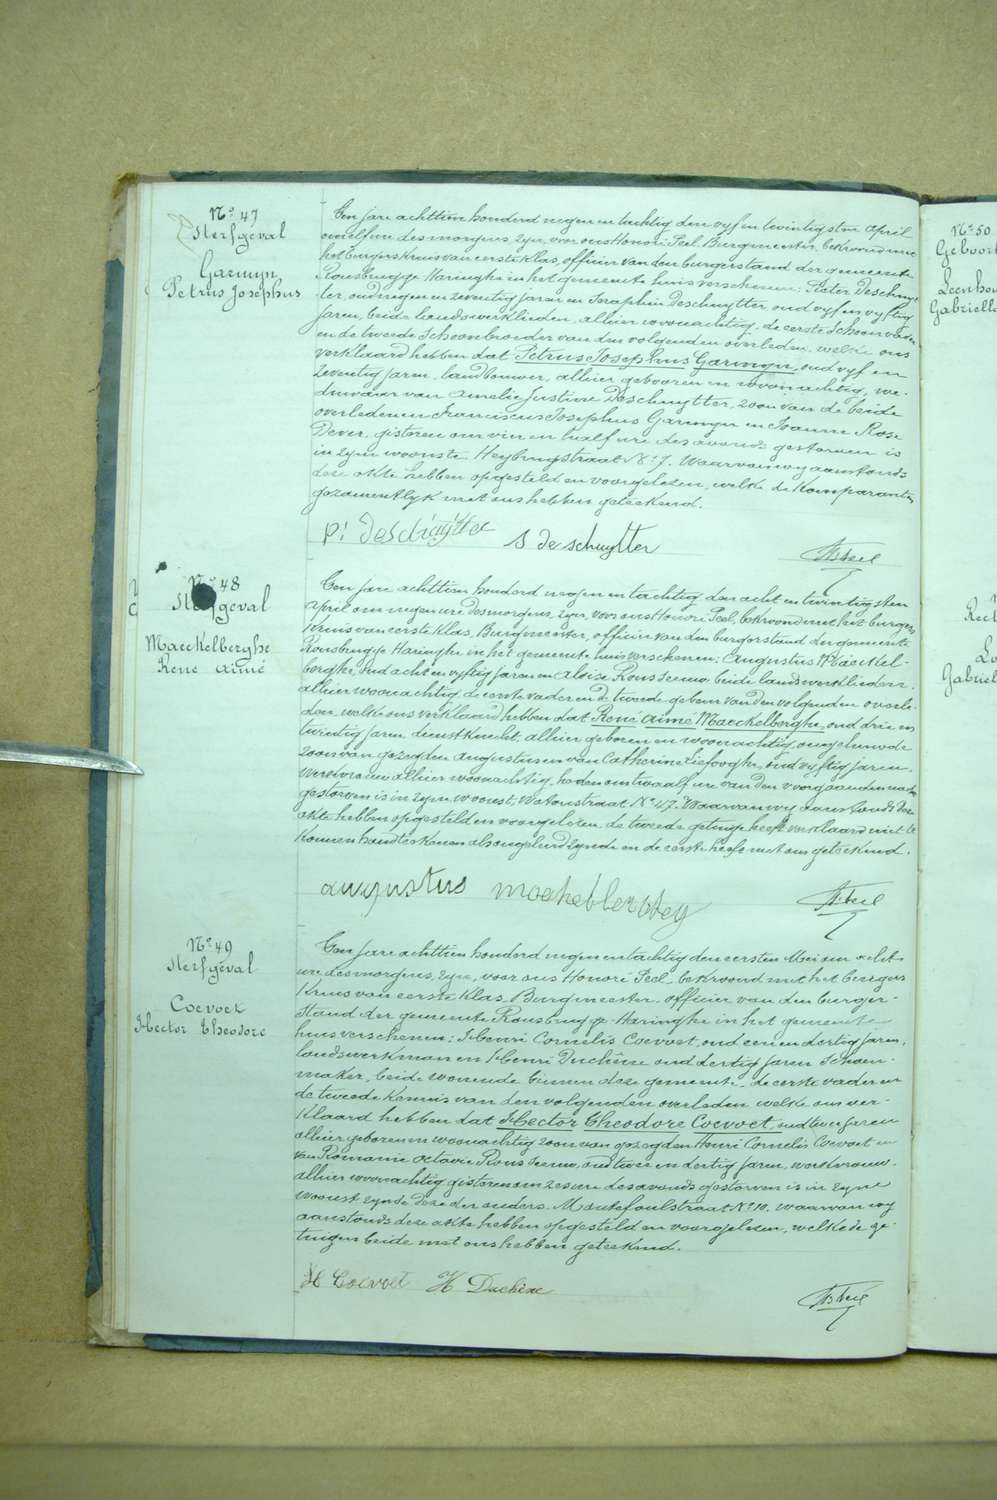 No 47
Sterfgeval
Garmyn
Petrus Josephus
Een jare achttien honderd negen en tachtig den vyf en twintigsten april
om elf ure des morgens, zyn, voor ons Honoré Peel Burgmeester, bekroond met
het burgers Kruis van eerste klas, officier van den burgerstand der gemeente
Rousbrugge Haringhe in het gemeente huis verschenen: Pieter Deschuyt-
ter, oud negen en zeventig jaren en Seraphin Deschuytter, oud vyf en vyftig
jaren, beide landswerklieden, alhier woonachtig, de eerste schoonvader
en de tweede schoonbroeder van den volgenden overleden, welke ons
verklaard hebben dat Petrus Josephus Garmyn, oud vyf en
zeventig jaren, landbouwer, alhier geboren en woonachtig, we-
duwaar van Amelie Justine Deschuytter, zoon van de beide
overledenen Franciscus Josephus Garmyn en Joanne Rose
Dever, gisteren om vier en half ure des avonds gestorven is
in zyne woonste Heybrugstraat No 7. Waarvan wy aanstonds
deze akte hebben opgesteld en voorgelezen, welke de Komparanten
gezamentlyk met ons hebben geteekend.
p: deschuytter s de schuytter HPeel
No 48
Sterfgeval
Maeckelberghe
René Aimé
Een jare achttien honderd negen en tachtig den acht en twintigsten
April om negen ure des morgens, zyn, voor ons Honoré Peel, bekroond met het burgers
Kruis van eerste klas, Burgmeester, officier van den burgerstand der gemeente
Rousbrugge Haringhe in het gemeente huis verschenen: Augustus Maeckel-
berghe, oud acht en vyftig jaren en Aloise Rousseeuw beide landswerklieden,
alhier woonachtig de eerste vader en de tweede gebuur van den volgenden overle-
den, welke ons verklaard hebben dat René Aimé Maeckelberghe, oud drie en
twintig jaren, dienstknecht, alhier geboren en woonachtig, ongehuwde
zoon van gezegden Augustus en van Catherine Liefooghe, oud vyftig jaren,
werkvrouw alhier woonachtig, heden om twaalf ure van den voorgaanden nacht
gestorven is in zyne woonst, Watoustraat No 47. Waarvan wy aanstonds deze
akte hebben opgesteld en voorgelezen, de tweede getuige heeft verklaard niet te
Konnen handteekenen als ongeleerd zynde en de eerste heeft met ons geteekend.
augustus maekelberghe HPeel
No 49
Sterfgeval
Coevoet
Hector Theodore
Een jare achttien honderd negen en tachtig den eersten Mei om acht
ure des morgens, zyn, voor ons Honoré Peel, bekroond met het burgers
Kruis van eerste klas, Burgmeester, officier van den burger-
stand der gemeente Rousbrugge-Haringhe in het gemeente
huis verschenen: Henri Cornelis Coevoet, oud een en dertig jaren,
landswerkman en Henri Duchêne oud dertig jaren Schoen-
maker, beide wonende binnen deze gemeente, de eerste vader en
de tweede kennis van den volgenden overleden welke ons ver-
klaard hebben dat Hector Theodore Coevoet, oud twee jaren
alhier geboren en woonachtig zoon van gezegden Henri Cornelis Coevoet en
van Romanie Octavie Rousseeuw, oud twee en dertig jaren, werkvrouw,
alhier woonachtig gisteren om zes ure des avonds gestorven is in zyne
woonst zynde deze der ouders. Moutefoulstraat No 10. waarvan wy
aanstonds deze akte hebben opgesteld en voorgelezen, welke de ge-
tuigen beide met ons hebben geteekend.
H Coevoet H Duchêne HPeel
No 50
Geboort
Leenhou
Gabrielle
Rect
Le
Gabriel